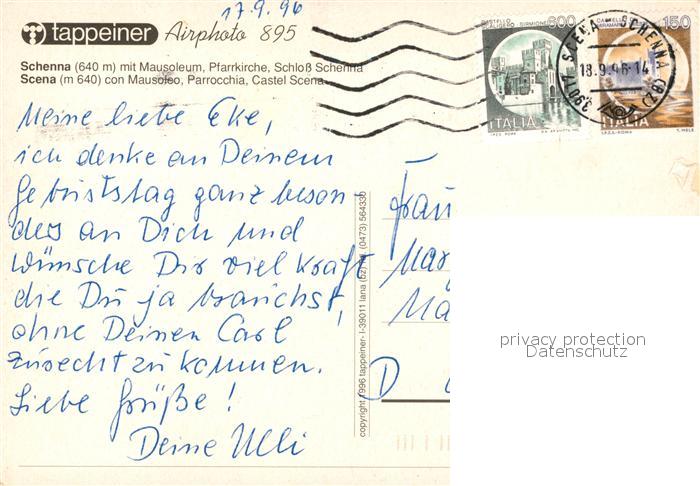 17.9.96
tappeiner Airphoto 895
Schenna (640 m) mit Mausoleum, Pfarrkirche, Schloß Schenna
Scena (m 640) con Mausoleo, Parrocchia, Castel Scena
Meine liebe Eke,
ich denke an Deinem
Geburtstag ganz beson-
ders an Dich und
wünsche Dir viel Kraft
die Du ja brauchst,
ohne Deinen Carl
zurecht zu kommen.
Liebe Grüße!
Deine Ulli
copyright 1996 tappeiner- I-39011 lana (bz) tel. (0473) 564330
600
ITALIA
150
ITALIA
39017 SCENA - SCHENNA (BZ)
18.9.96-14
Frau
D
privacy protection
Datenschutz